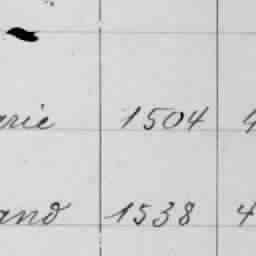 arie 1504 4
and 1538 4